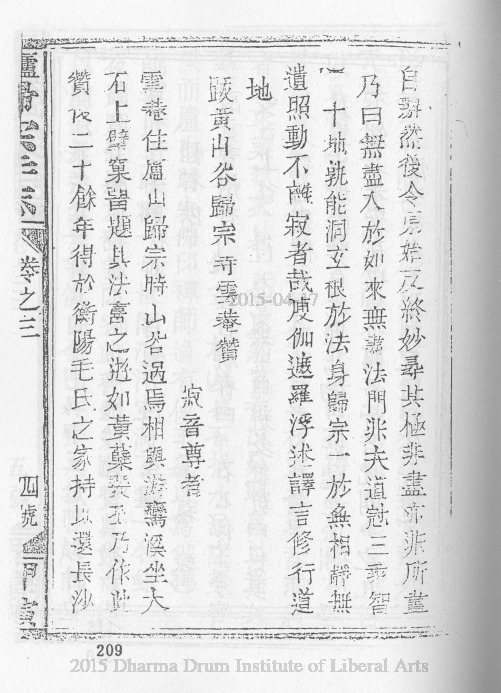 自辯然後令原始反終妙尋其極非盡亦非所盡
乃曰無盡入於如來無盡法門非夫道冠三乘智
十地孰能洞玄根於法身歸宗一於無相靜無
遺照動不離寂者哉度伽遮羅浮迷譯言修行道
地
跋黃山谷歸宗寺雲菴贊
寂音尊者
雲菴住廬山歸宗時山谷過焉相與游鸞溪坐大
石上擘窠書題其法喜之游如黃蘗裴公乃作此
贊後二十餘年得於衡陽毛氏之家持以還長沙
卷之三
四號
甲寅
209
2015-04-17
2015 Dharma Drum Institute of Liberal Arts